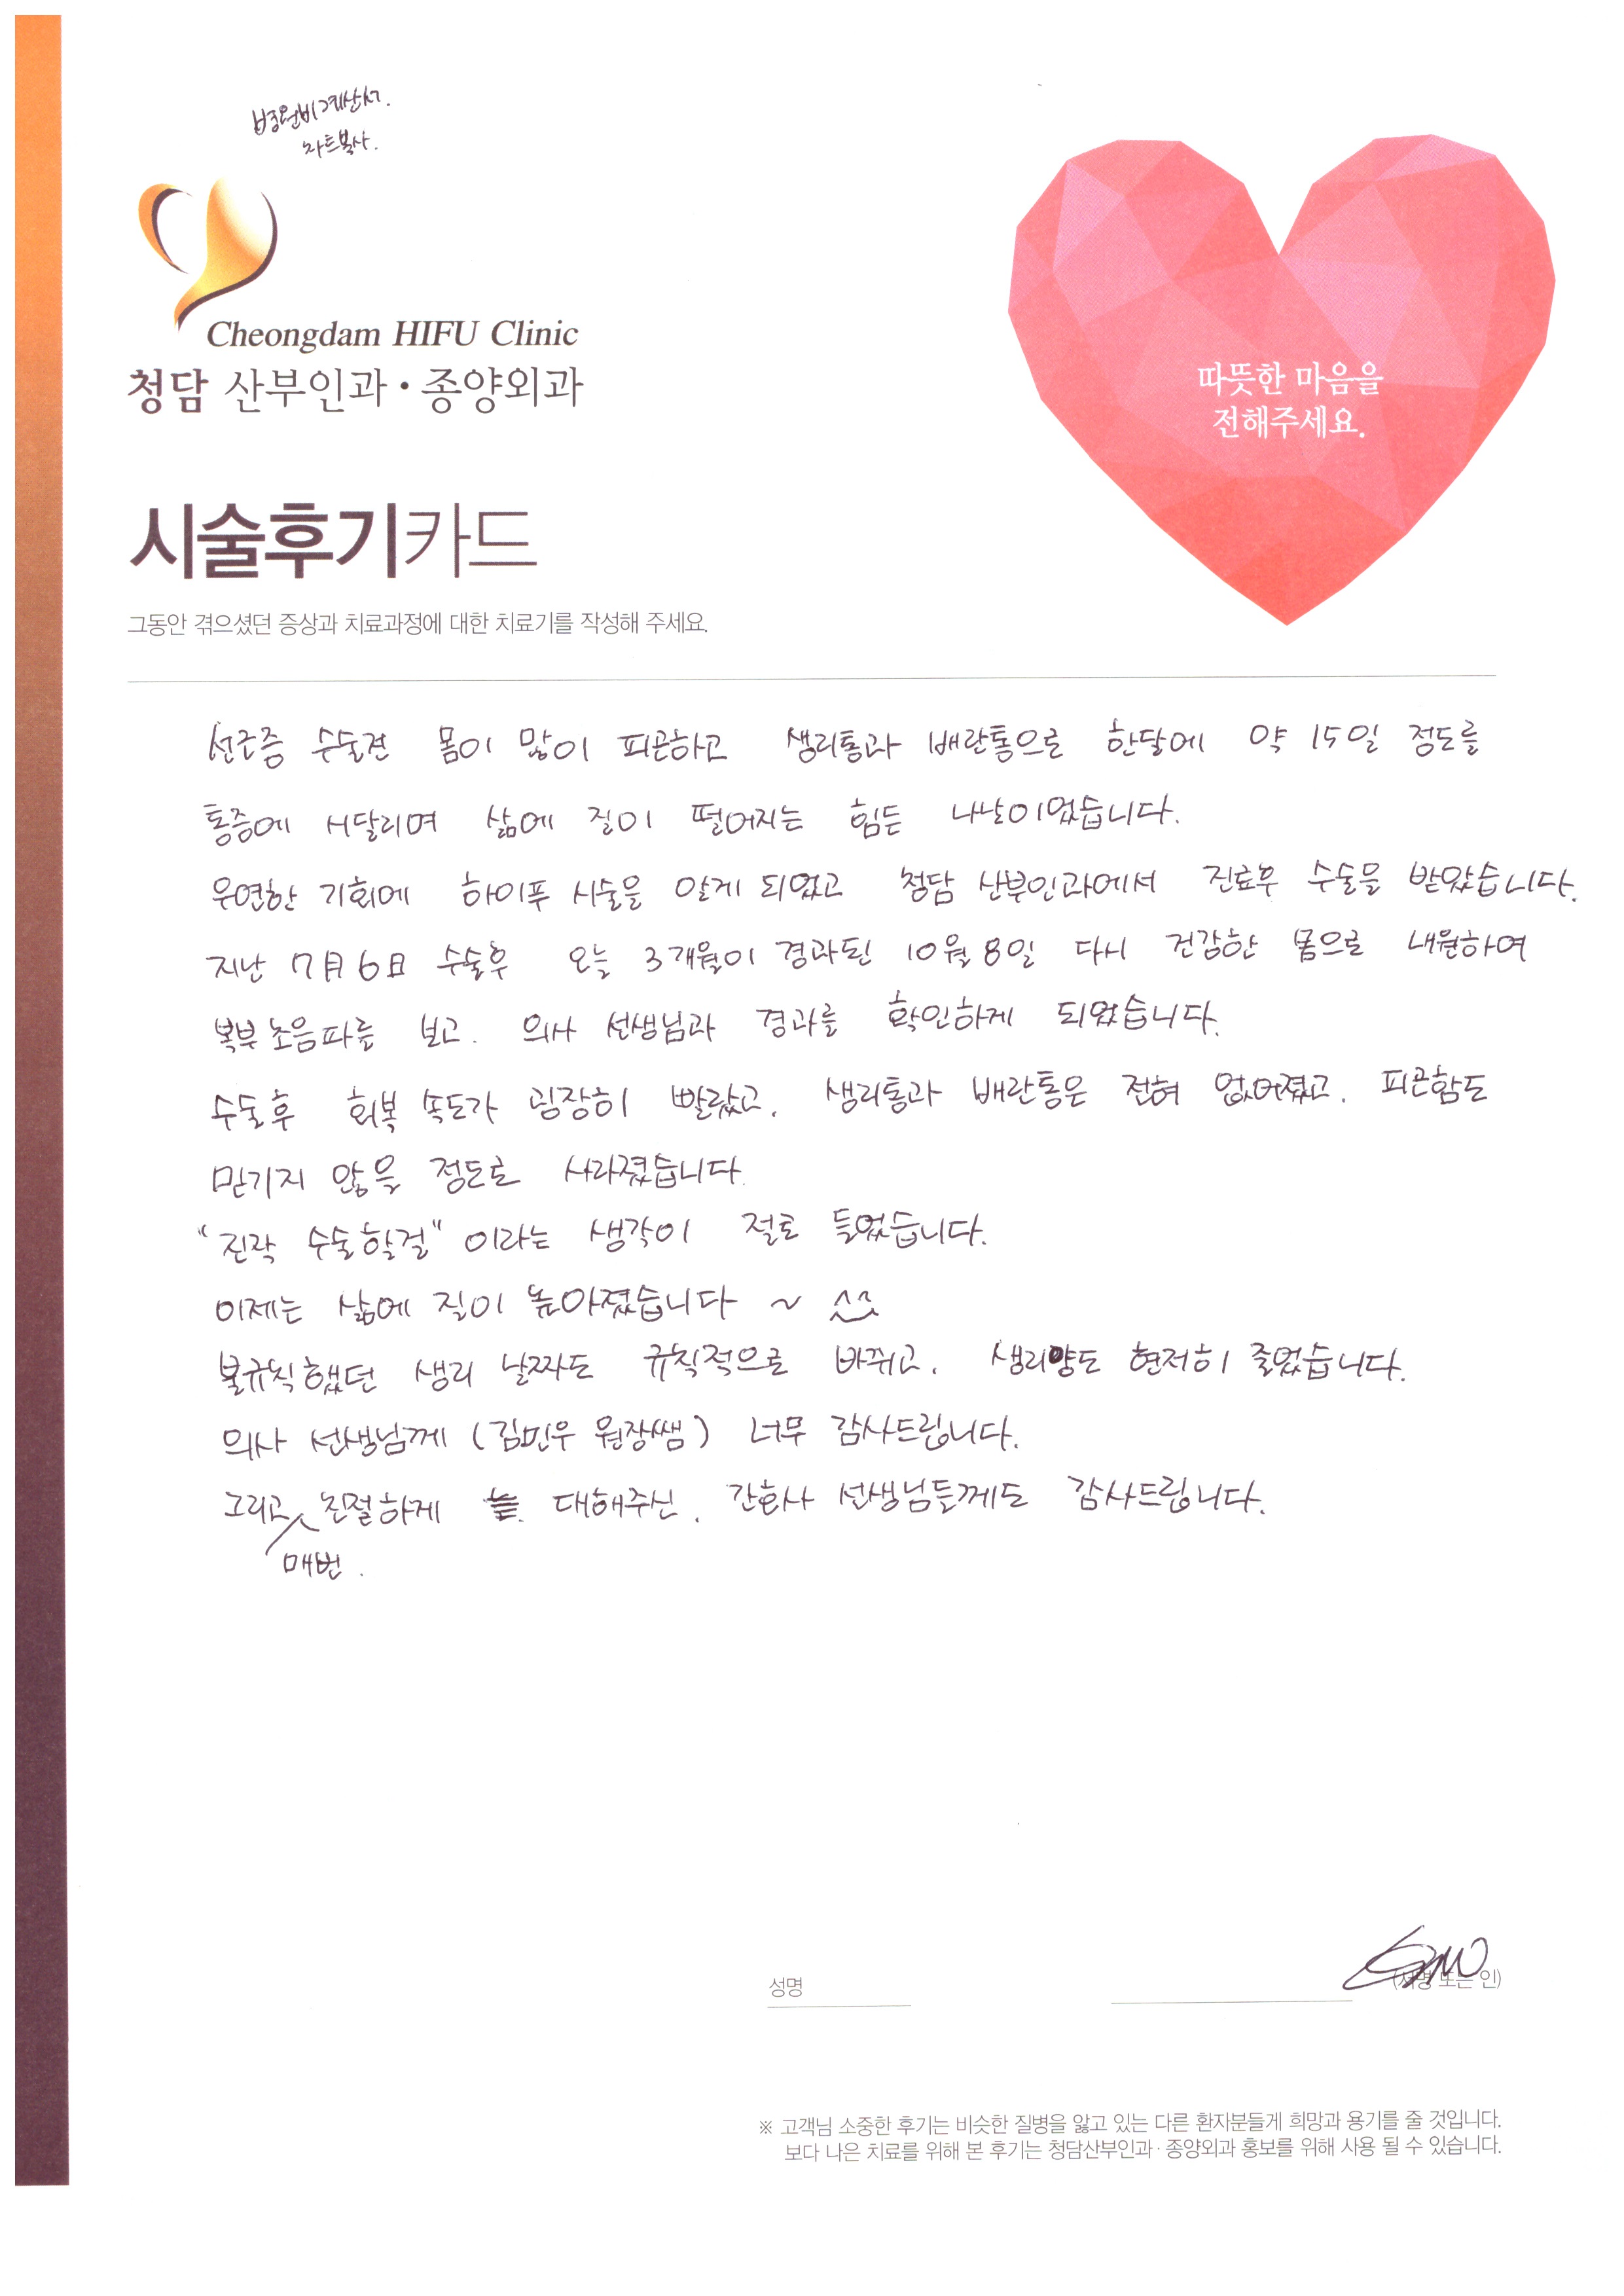 병원비계산서.
차트복사.
Cheongdam HIFU Clinic
청담 산부인과·종양외과
따뜻한 마음을
전해주세요.
시술후기카드
그동안 겪으셨던 증상과 치료과정에 대한 치료기를 작성해 주세요.
선근증 수술전 몸이 많이 피곤하고 생리통과 배란통으로 한달에 약 15일 정도를
통증에 시달리며 삶에 질이 떨어지는 힘든 나날이었습니다.
우연한 기회에 하이푸 시술을 알게 되었고 청담 산부인과에서 진료후 수술을 받았습니다.
지난 7月 6日 수술후 오늘 3개월이 경과된 10월 8일 다시 건강한 몸으로 내원하여
복부 초음파를 보고. 의사 선생님과 경과를 확인하게 되었습니다.
수술후 회복 속도가 굉장히 빨랐고, 생리통과 배란통은 전혀 없어졌고, 피곤함도
믿기지 않을 정도로 사라졌습니다.
"진작 수술할걸" 이라는 생각이 절로 들었습니다.
이제는 삶에 질이 높아졌습니다 ~ ^^
불규칙했던 생리 날짜도 규칙적으로 바뀌고, 생리양도 현저히 줄었습니다.
의사 선생님께 (김민우 원장쌤) 너무 감사드립니다.
그리고 친절하게 대해주신. 간호사 선생님들께도 감사드립니다.
매번.
성명
(서명 또는 인)
※ 고객님 소중한 후기는 비슷한 질병을 앓고 있는 다른 환자분들게 희망과 용기를 줄 것입니다.
보다 나은 치료를 위해 본 후기는 청담산부인과·종양외과 홍보를 위해 사용 될 수 있습니다.